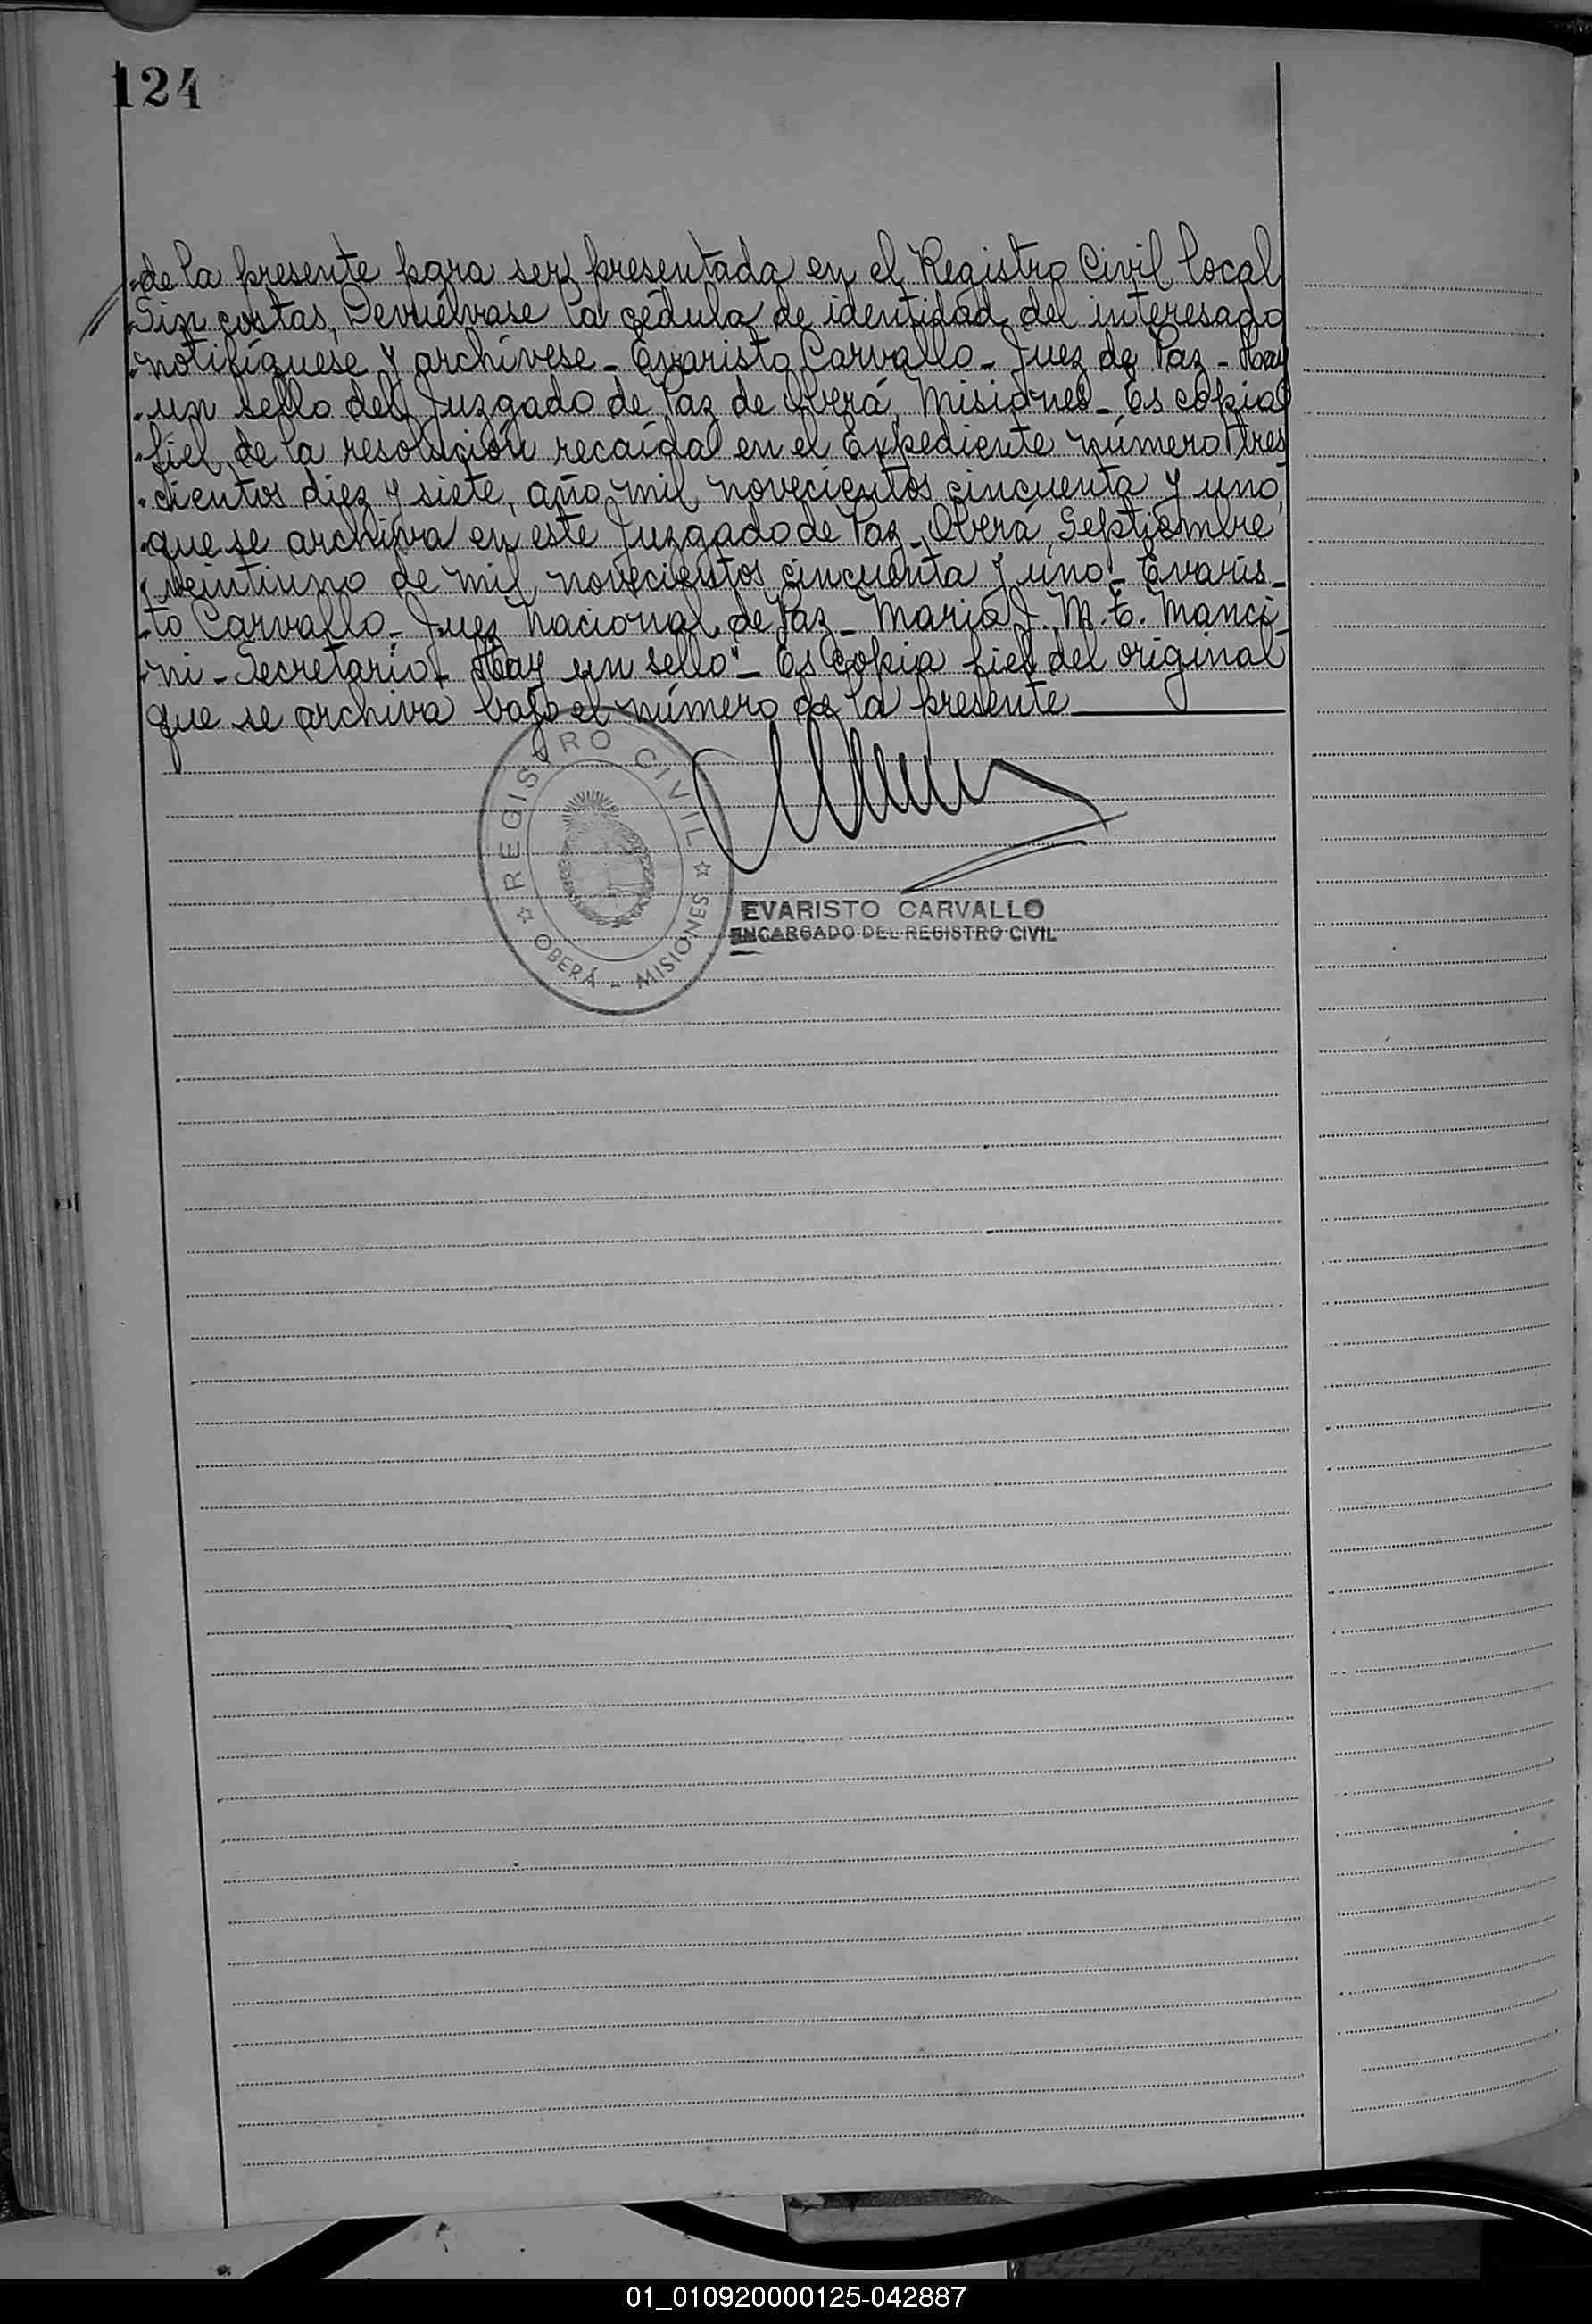 124
"de la presente para ser presentada en el Registro Civil local
"Sin costas, Devuélvase la cédula de identidad del interesado
"notifíquese y archívese - Evaristo Carvallo - Juez de Paz - Hay
"un sello del Juzgado de Paz de Oberá, Misiones - Es copia
"fiel de la resolución recaída en el Expediente número tres
"cientos diez y siete, año mil novecientos cincuenta y uno,
"que se archiva en este Juzgado de Paz - Oberá, Septiembre
"veintiuno de mil novecientos cincuenta y uno - Evaris-
"to Carvallo - Juez Nacional de Paz - Mario J. M. E. Manci-
"ni - Secretario - Hay un sello" - Es copia fiel del original
que se archiva bajo el número de la presente
REGISTRO CIVIL
OBERÁ - MISIONES
EVARISTO CARVALLO
ENCARGADO DEL REGISTRO CIVIL
01_010920000125-042887